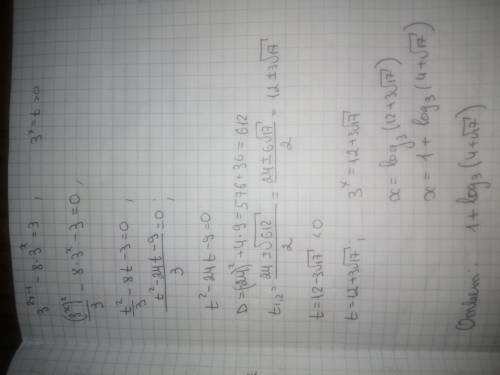 3^(2x-1) - 8·3^x = 3 ; 3^x = t > 0
(3^x)²/3 - 8·3^x - 3 = 0 ;
t²/3 - 8t - 3 = 0 ;
(t² - 24t - 9)/3 = 0 ;
t² - 24t - 9 = 0
D = (24)² + 4·9 = 576 + 36 = 612
t₁,₂ = (24 ± √612)/2 = (24 ± 6√17)/2 = 12 ± 3√17
t = 12 - 3√17 < 0
t = 12 + 3√17 ; 3^x = 12 + 3√17
x = log₃(12 + 3√17)
x = 1 + log₃(4 + √17)
Ответ: 1 + log₃(4 + √17)